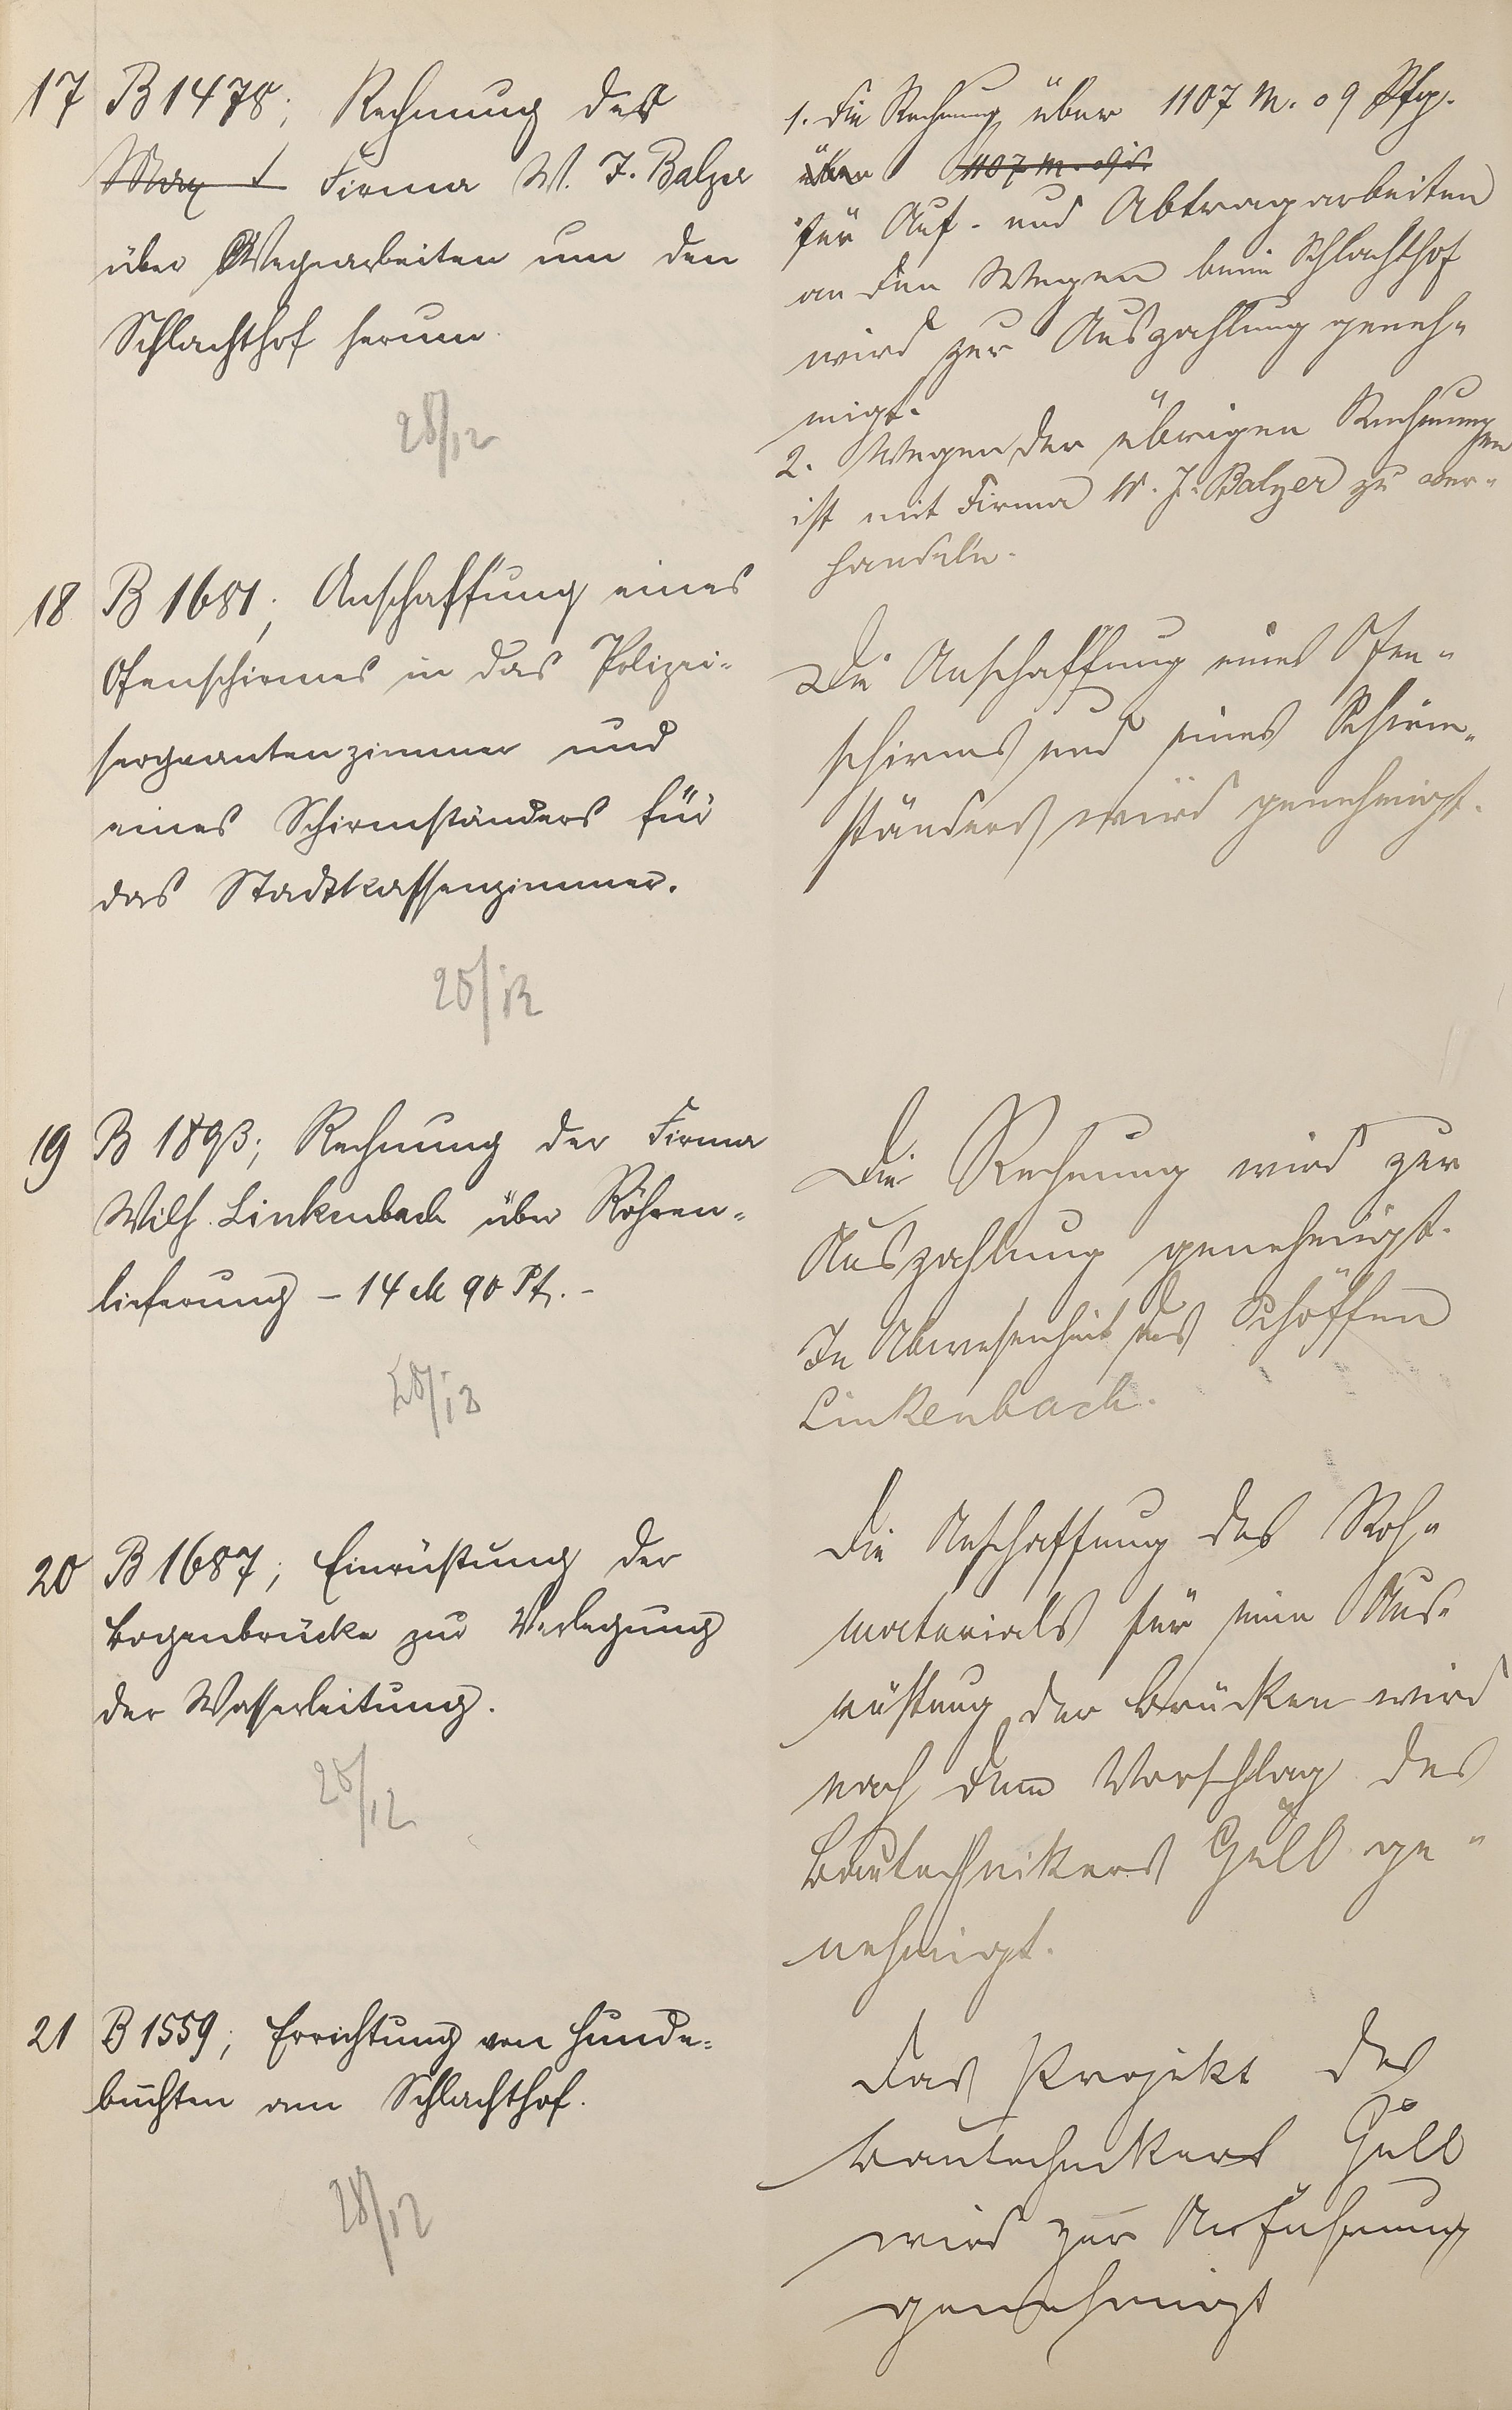 17 B 1478; Rechnung der
Firma W. J. Balzer
über Wegearbeiten um den
Schlachthof herum.
28/12
1. Die Rechnung über 1107 M. 09 Pfg.
über 1107 M.
für Auf- und Abtragarbeiten
an den Wegen beim Schlachthof
wird zur Auszahlung geneh-
migt.
2. Wegen der übrigen Rechnungen
ist mit Firma W. J. Balzer zu ver-
handeln.
18 B 1681; Anschaffung eines
Ofenschirmes in das Polizei-
sergeantenzimmer und
eines Schirmständers für
das Stadtkassenzimmer.
28/12
Die Anschaffung eines Ofen-
schirms und eines Schirm-
ständers wird genehmigt.
19 B 1893; Rechnung der Firma
Wilh. Linkenbach über Röhren-
lieferung - 14 M 90 Pf. -
28/12
Die Rechnung wird zur
Auszahlung genehmigt.
In Abwesenheit des Schöffen
Linkenbach.
20 B 1687; Einrüstung der
Bogenbrücke zur Verlegung
der Wasserleitung.
28/12
Die Anschaffung des Roh-
materials für eine Aus-
rüstung der Brücken wird
nach dem Vorschlag des
Bautechnikers Güll ge-
nehmigt.
21 B 1559; Errichtung von Hunde-
buchten am Schlachthof.
28/12
Das Projekt des
Bautechnikers Güll
wird zur Ausführung
genehmigt